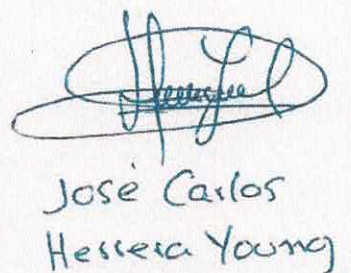 José Carlos
Herrera Young